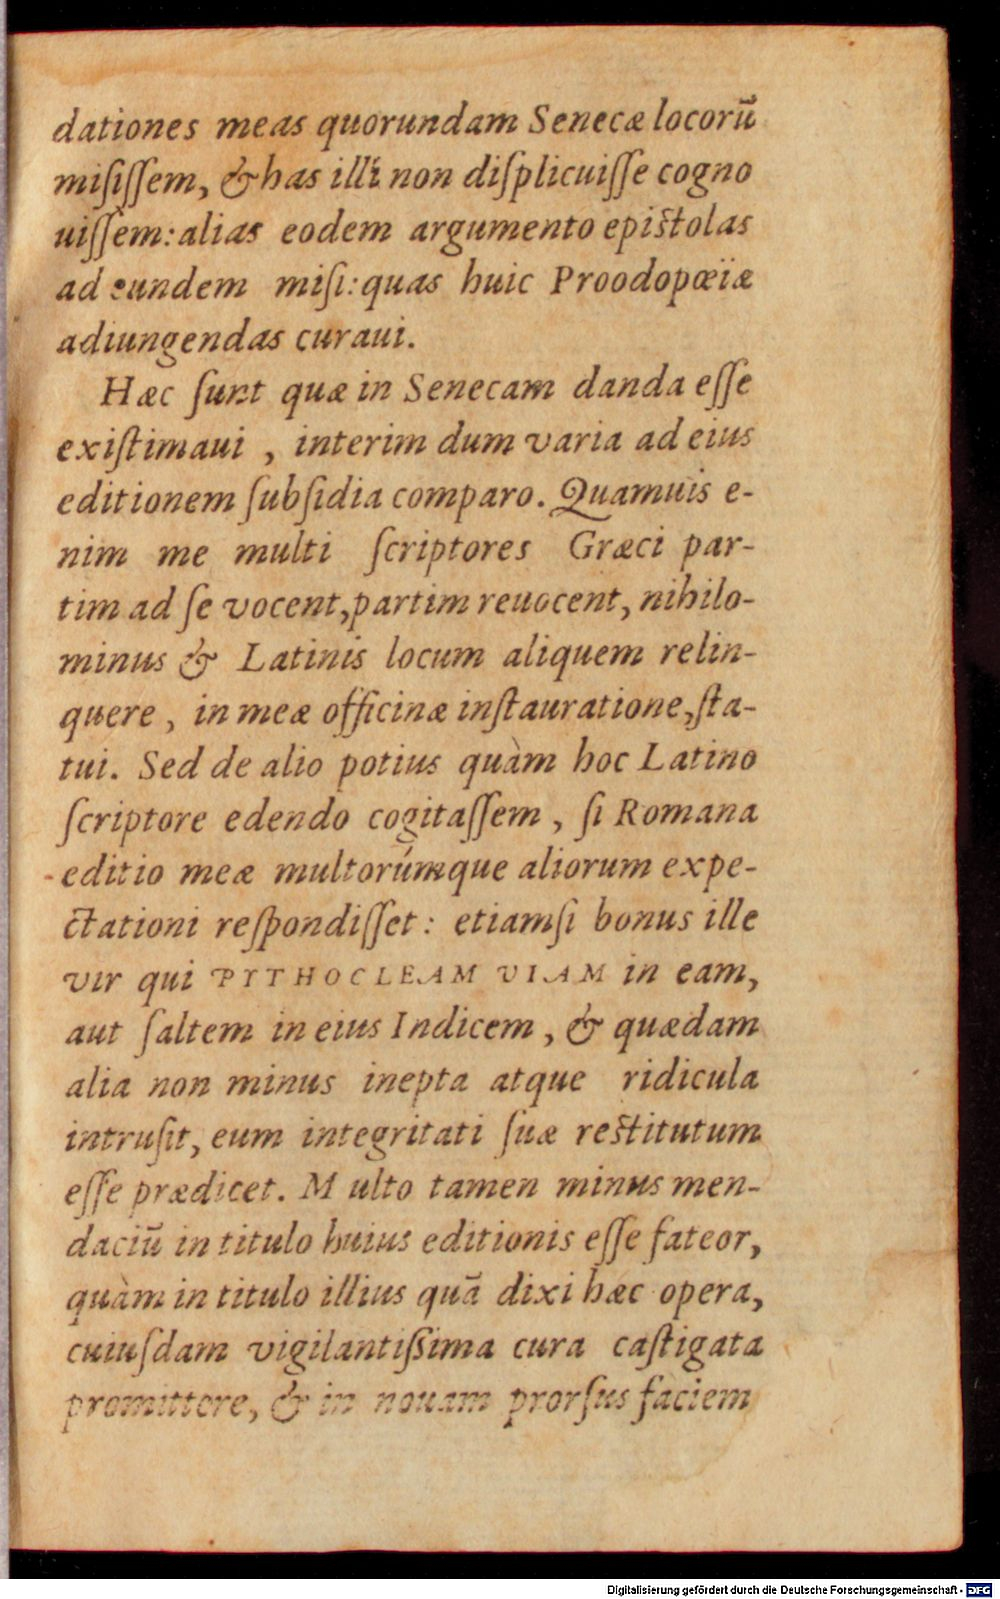 dationes meas quorundam Senecæ locorū
misissem, & has illi non displicuisse cogno
uissem: alias eodem argumento epistolas
ad eundem misi: quas huic Proodopœiæ
adiungendas curaui.
Hæc sunt quæ in Senecam danda esse
existimaui , interim dum varia ad eius
editionem subsidia comparo. Quamuis e-
nim me multi scriptores Græci par-
tim ad se vocent, partim reuocent, nihilo-
minus & Latinis locum aliquem relin-
quere , in meæ officinæ instauratione, sta-
tui. Sed de alio potius quàm hoc Latino
scriptore edendo cogitassem , si Romana
editio meæ multorúmque aliorum expe-
ctationi respondisset: etiamsi bonus ille
vir qui PYTHOCLEAM VIAM in eam,
aut saltem in eius Indicem , & quædam
alia non minus inepta atque ridicula
intrusit, eum integritati suæ restitutum
esse prædicet. Multo tamen minus men-
daciū in titulo huius editionis esse fateor,
quàm in titulo illius quā dixi hæc opera,
cuiusdam vigilantissima cura castigata
promittere, & in nouam prorsus faciem
Digitalisierung gefördert durch die Deutsche Forschungsgemeinschaft - DFG